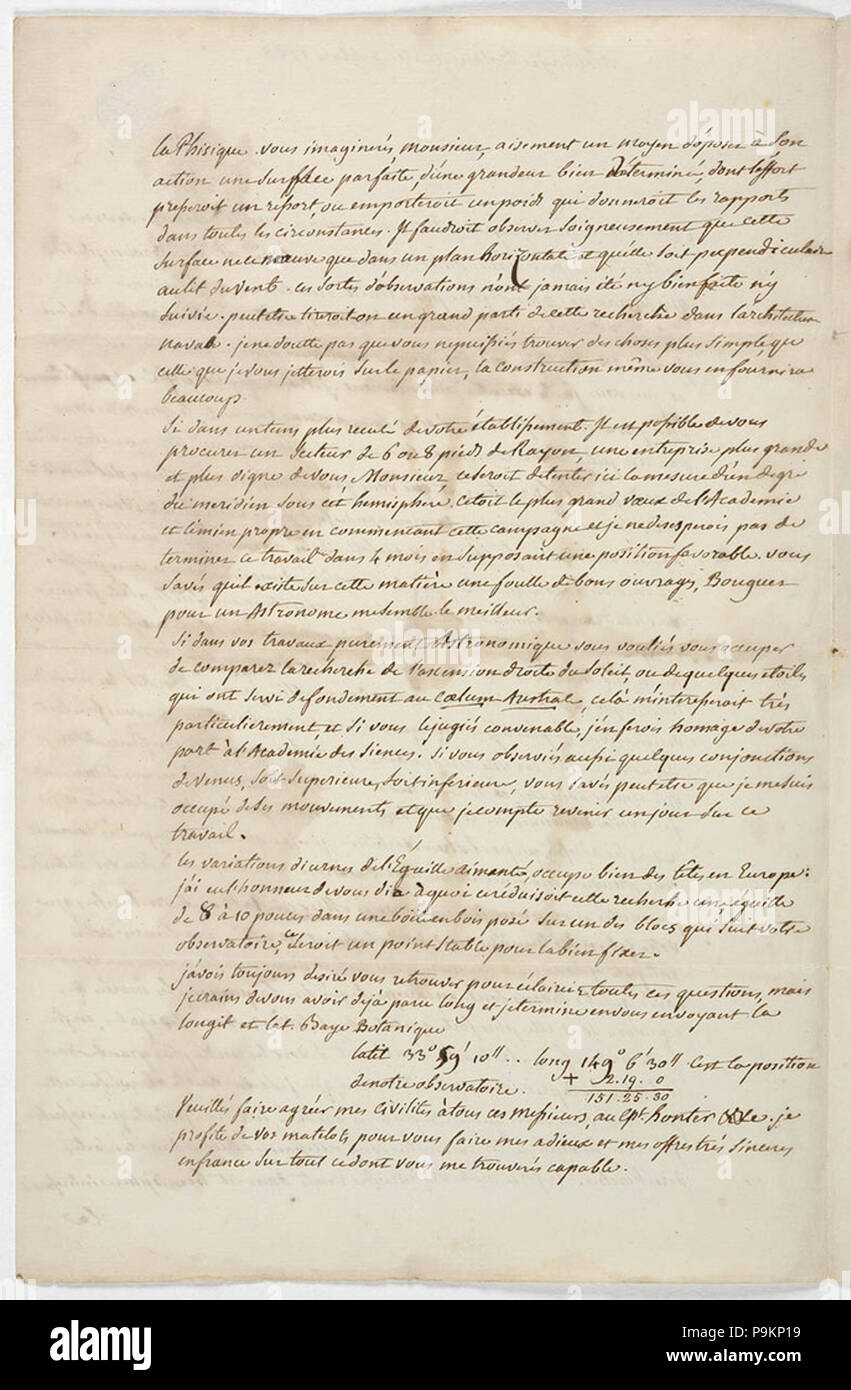 la Phisique. vous imaginerés, monsieur, aisement un moyen d'oposer à son
action une surfface parfaite, d'une grandeur bien déterminé, dont l'effort
preseroit un resort, ou emporteroit un poids qui donneroit les rapports
dans toutes les circonstances. Il faudroit observer soigneusement que cette
surface ne ce meuve que dans un plan horizontale et qu'elle soit perpendiculaire
au lit du vent. ces sortes d'observations n'ont jamais été n'y bien faite n'y
suivie. peut etre tireroit on un grand parti de cette recherche dans l'architecture
navale. je ne doutte pas que vous ne puissiés trouver des choses plus simple, que
celle que je vous jetterois sur le papier, la construction même vous en fournira
beaucoup.
Si dans un tems plus reculé de votre établissement. Il est possible de vous
procurer un secteur de 6 ou 8 pieds de Rayon, une entreprise plus grande
et plus digne de vous Monsieur, ce seroit de tenter ici la mesure d'un degré
du meridien sous cet hemisphere. c'etoit le plus grand vœux de l'Academie
et le mien propre en commentant cette campagne et je ne desesperois pas de
terminer ce travail dans 4 mois en supposant une position favorable. vous
savés qu'il existe sur cette matière une foulle de bons ouvrages, Bouguer
pour un Astronome me semble le meilleur.
Si dans vos travaux purement Astronomique vous vouliés vous occuper
de comparer la recherche de l'ascension droite du soleil, ou de quelques etoiles
qui ont servi de fondement au cœlum Australe, celà m'interesseroit très
particulierement, et si vous le jugiés convenable, j'en ferois homage de votre
part à l'Academie des siences. si vous observiés aussi quelques conjonctions
de Venus, soit superieure, soit inferieure, vous savés peut etre que je me suis
occupé de ses mouvements et que je compte revenir un jour sur ce
travail.
les variations diurnes de l'Eguille aimanté, occupe bien des têtes en Europe:
j'ai eu l'honneur de vous dire à quoi ce réduisoit cette recherche une eguille
de 8 à 10 pouces dans une boëte en bois posé sur un des blocs qui sont votre
observatoire, ce seroit un point stable pour la bien fixer.
j'avois toujours desiré vous retrouver pour eclaircir toutes ces questions, mais
je crains de vous avoir déjà paru long et je termine en vous envoyant la
longit et lat. Baye Botanique
latit 33° 59' 10" .. long 149° 6' 30" c'est la position
de notre observatoire. + 2. 19. 0
151. 25. 30
Veuillés faire agréer mes civilités à tous ces messieurs, au Cpt. honter &&c. je
profite de vos matelots pour vous faire mes adieux et mes offres trés sinceres
en france sur tout ce dont vous me trouverés capable.
alamy
Image ID: P9KP19
www.alamy.com